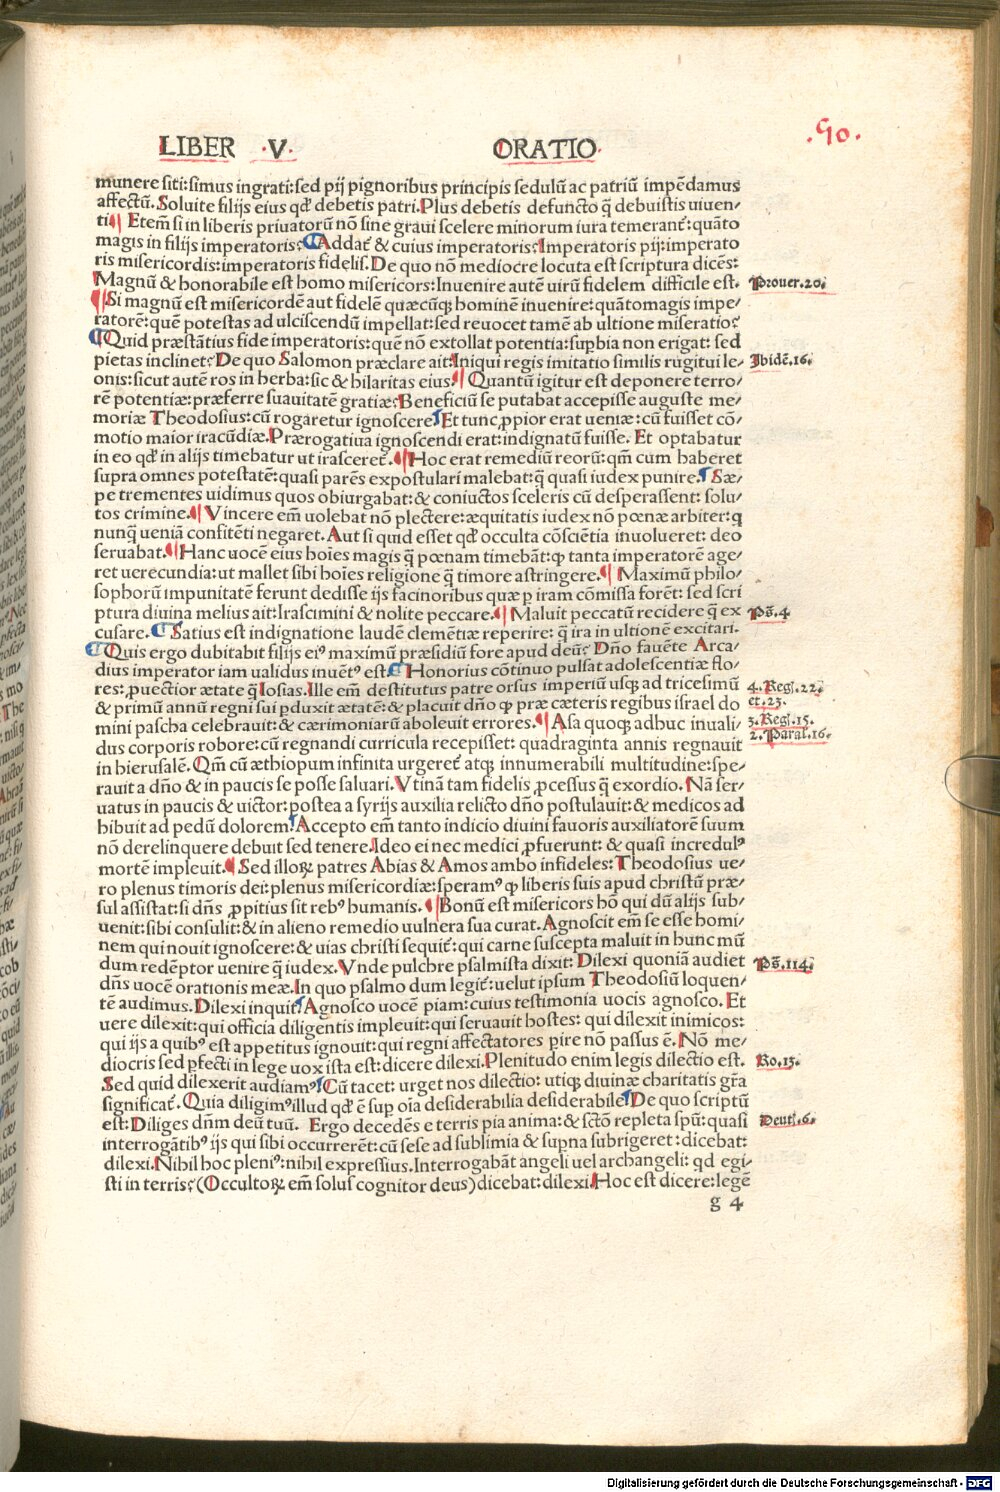 .90.
LIBER .V. ORATIO.
munere siti: simus ingrati: sed pij pignoribus principis sedulū ac patriū impēdamus
affectū. Soluite filijs eius qđ debetis patri. Plus debetis defuncto q̄ debuistis uiuen/
ti¶ Etem̄ si in liberis priuatorū nō sine graui scelere minorum iura temerant᷑: quāto
magis in filijs imperatoris? Addat᷑ & cuius imperatoris? Imperatoris pij: imperato
ris misericordis: imperatoris fidelis. De quo nō mediocre locuta est scriptura dicēs:
Magnū & honorabile est homo misericors: Inuenire autē uirū fidelem difficile est. Prouer.20.
¶ Si magnū est misericordē aut fidelē quæcūqꝫ hominē inuenire: quātomagis impe/
ratorē: quē potestas ad ulciscendū impellat: sed reuocet tamē ab ultione miseratio?
¶ Quid præstātius fide imperatoris: quē nō extollat potentia: suꝑbia non erigat: sed
pietas inclinet? De quo Salomon præclare ait: Iniqui regis imitatio similis rugitui le/ Ibidē.16.
onis: sicut autē ros in herba: sic & hilaritas eius.¶ Quantū igitur est deponere terro/
rē potentiæ: præferre suauitatē gratiæ? Beneficiū se putabat accepisse auguste me/
moriæ Theodosius: cū rogaretur ignoscere¶ Et tunc ꝓpior erat ueniæ: cū fuisset cō/
motio maior iracūdiæ. Prærogatiua ignoscendi erat: indignatū fuisse. Et optabatur
in eo qđ in alijs timebatur ut irasceret᷑.¶ Hoc erat remediū reorū: qm̄ cum haberet
supra omnes potestatē: quasi parēs expostulari malebat: q̄ quasi iudex punire.¶ Sæ/
pe trementes uidimus quos obiurgabat: & conuictos sceleris cū desperassent: solu/
tos crimine.¶ Vincere em̄ uolebat nō plectere: æquitatis iudex nō pœnæ arbiter: q
nunq̄ ueniā confitēti negaret. Aut si quid esset qđ occulta cōsciētia inuolueret: deo
seruabat.¶ Hanc uocē eius hoīes magis q̄ pœnam timebāt: ꝙ tanta imperatorē age/
ret uerecundia: ut mallet sibi hoīes religione q̄ timore astringere.¶ Maximū philo/
sophorū impunitatē ferunt dedisse ijs facinoribus quæ ꝑ iram cōmissa forēt: sed scri
ptura diuina melius ait: Irascimini & nolite peccare.¶ Maluit peccatū recidere q̄ ex Ps̄.4
cusare.¶ Satius est indignatione laudē clemētiæ reperire: q̄ ira in ultionē excitari.
¶ Quis ergo dubitabit filijs eiꝰ maximū præsidiū fore apud deū? Dn̄o fauēte Arca/
dius imperator iam ualidus inuētꝰ est.¶ Honorius cōtinuo pulsat adolescentiæ flo/
res: ꝓuectior ætate q̄ Iosias. Ille em̄ destitutus patre orsus imperiū usqꝫ ad tricesimū 4.Regꝭ.22.
& primū annū regni sui ꝑduxit ætatē: & placuit dn̄o ꝙ præ cæteris regibus israel do et.23.
mini pascha celebrauit: & cærimoniarū aboleuit errores.¶ Asa quoqꝫ adhuc inuali/ 3.Regꝭ.15.
dus corporis robore: cū regnandi curricula recepisset: quadraginta annis regnauit 2.Paral.16.
in hierusalē. Qm̄ cū æthiopum infinita urgeret᷑ atqꝫ innumerabili multitudine: spe/
rauit a dn̄o & in paucis se posse saluari. Vtinā tam fidelis ꝓcessus q̄ exordio. Nā ser/
uatus in paucis & uictor: postea a syrijs auxilia relicto dn̄o postulauit: & medicos ad
hibuit ad pedū dolorem¶ Accepto em̄ tanto indicio diuini fauoris auxiliatorē suum
nō derelinquere debuit sed tenere. Ideo ei nec medici ꝓfuerunt: & quasi incredulꝰ
mortē impleuit.¶ Sed illoꝝ patres Abias & Amos ambo infideles: Theodosius ue/
ro plenus timoris dei: plenus misericordiæ: speramꝰ ꝙ liberis suis apud christū præ/
sul assistat: si dn̄s ꝓpitius sit rebꝰ humanis.¶ Bonū est misericors hō qui dū alijs sub/
uenit: sibi consulit: & in alieno remedio uulnera sua curat. Agnoscit em̄ se esse homi/
nem qui nouit ignoscere: & uias christi sequit᷑: qui carne suscepta maluit in hunc mū
dum redēptor uenire q̄ iudex. Vnde pulchre psalmista dixit: Dilexi quoniā audiet Ps̄.114.
dn̄s uocē orationis meæ. In quo psalmo dum legit᷑: uelut ipsum Theodosiū loquen/
tē audimus. Dilexi inquit¶ Agnosco uocē piam: cuius testimonia uocis agnosco. Et
uere dilexit: qui officia diligentis impleuit: qui seruauit hostes: qui dilexit inimicos:
qui ijs a quibꝰ est appetitus ignouit: qui regni affectatores ꝑire nō passus ē. Nō me/
diocris sed ꝑfecti in lege uox ista est: dicere dilexi. Plenitudo enim legis dilectio est. Ro.13.
Sed quid dilexerit audiamꝰ¶ Cū tacet: urget nos dilectio: utiqꝫ diuinæ charitatis gr̄a
significat᷑. Quia diligimꝰ illud qđ ē sup oīa desiderabilia desiderabile¶ De quo scriptū
est: Diliges dn̄m deū tuū. Ergo decedēs e terris pia anima: & sct̄o repleta spū: quasi Deutꝭ.6.
interrogātibꝰ ijs qui sibi occurrerēt: cū sese ad sublimia & suꝑna subrigeret: dicebat:
dilexi. Nihil hoc pleniꝰ: nihil expressius. Interrogabāt angeli uel archangeli: qd egi/
sti in terris? (Occultoꝝ em̄ solus cognitor deus) dicebat: dilexi. Hoc est dicere: legē
g 4
Digitalisierung gefördert durch die Deutsche Forschungsgemeinschaft - DFG